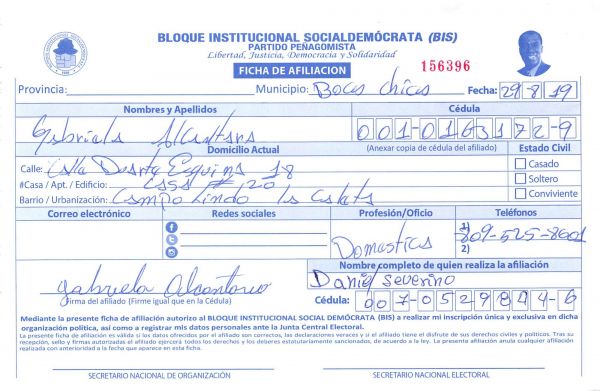 BLOQUE INSTITUCIONAL SOCIALDEMÓCRATA (BIS)
PARTIDO PEÑAGOMISTA
Libertad, Justicia, Democracia y Solidaridad
FICHA DE AFILIACION
156396
Provincia: Municipio: Boca chica Fecha: 29-8-19
Nombres y Apellidos Cédula
Gabriela Alcantara 001-0163172-9
Domicilio Actual (Anexar copia de cédula del afiliado) Estado Civil
Calle: Calle Duarte Esquina 18 Casado
#Casa / Apt. / Edificio: Casa # 120 Soltero
Barrio / Urbanización: Campo Lindo la Caleta Conviviente
Correo electrónico Redes sociales Profesión/Oficio Teléfonos
Domestica 1) 809-525-8601
2)
Nombre completo de quien realiza la afiliación
Gabriela Alcantara Daniel Severino
Firma del afiliado (Firme igual que en la Cédula) Cédula: 007-0529844-6
Mediante la presente ficha de afiliación autorizo al BLOQUE INSTITUCIONAL SOCIAL DEMÓCRATA (BIS) a realizar mi inscripción única y exclusiva en dicha
organización política, así como a registrar mis datos personales ante la Junta Central Electoral.
La presente ficha de afiliación es válida si los datos ofrecidos por el afiliado son correctos, las declaraciones veraces y si el afiliado tiene el disfrute de sus derechos civiles y políticos. Tras su
recepción, sello y firmas autorizadas el afiliado ejercerá todos los derechos y los deberes estatutariamente sancionados, de acuerdo a la ley. La presente afiliación anula cualquier afiliación
realizada con anterioridad a la fecha que aparece en esta ficha.
SECRETARIO NACIONAL DE ORGANIZACIÓN SECRETARIO NACIONAL ELECTORAL